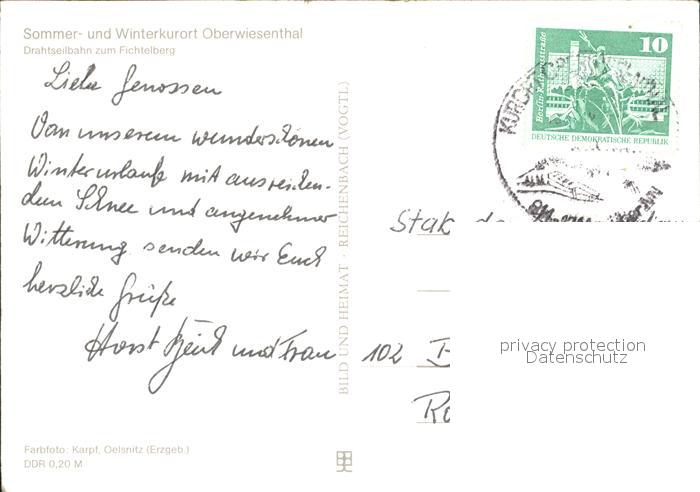 Sommer- und Winterkurort Oberwiesenthal
Drahtseilbahn zum Fichtelberg
Liebe Genossen
Von unserem wunderschönen
Winterurlaub mit ausreichen-
dem Schnee und angenehmer
Witterung senden wir Euch
herzliche Grüße
Horst und Frau
BILD UND HEIMAT · REICHENBACH (VOGTL)
Farbfoto: Karpf, Oelsnitz (Erzgeb.)
DDR 0,20 M
10
Berlin-Rathausstraße
DEUTSCHE DEMOKRATISCHE REPUBLIK
102
privacy protection
Datenschutz